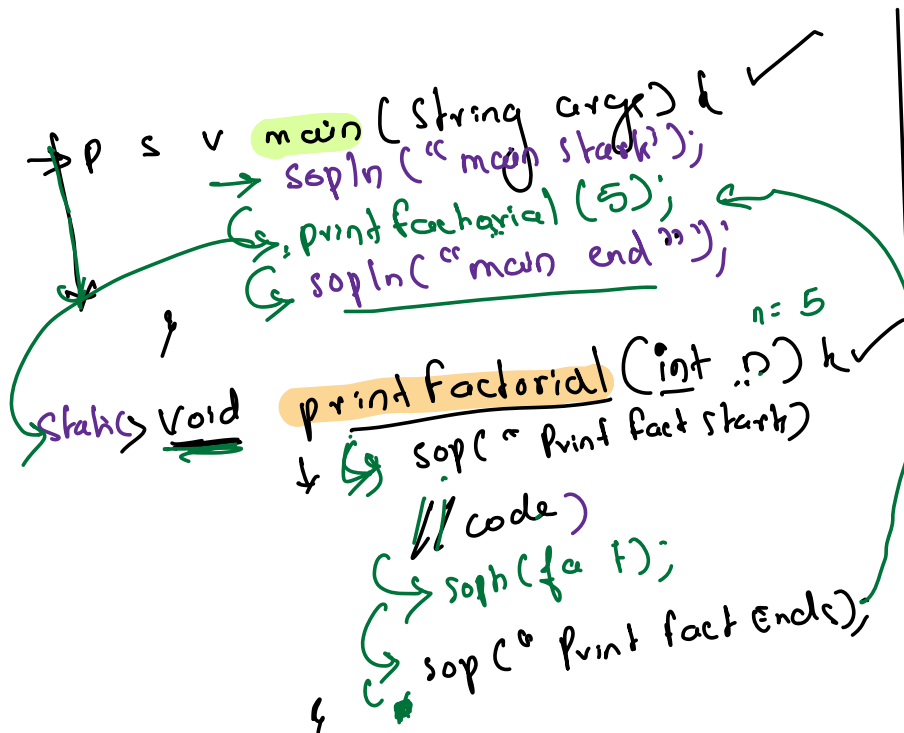 p s v main (String args) {
sopln ("main start");
printfactorial (5);
sopln ("main end");
}
n = 5
static void printfactorial (int n) {
sop (" Print fact start)
// code
sopln (fa t);
sop (" Print fact Ends);
}